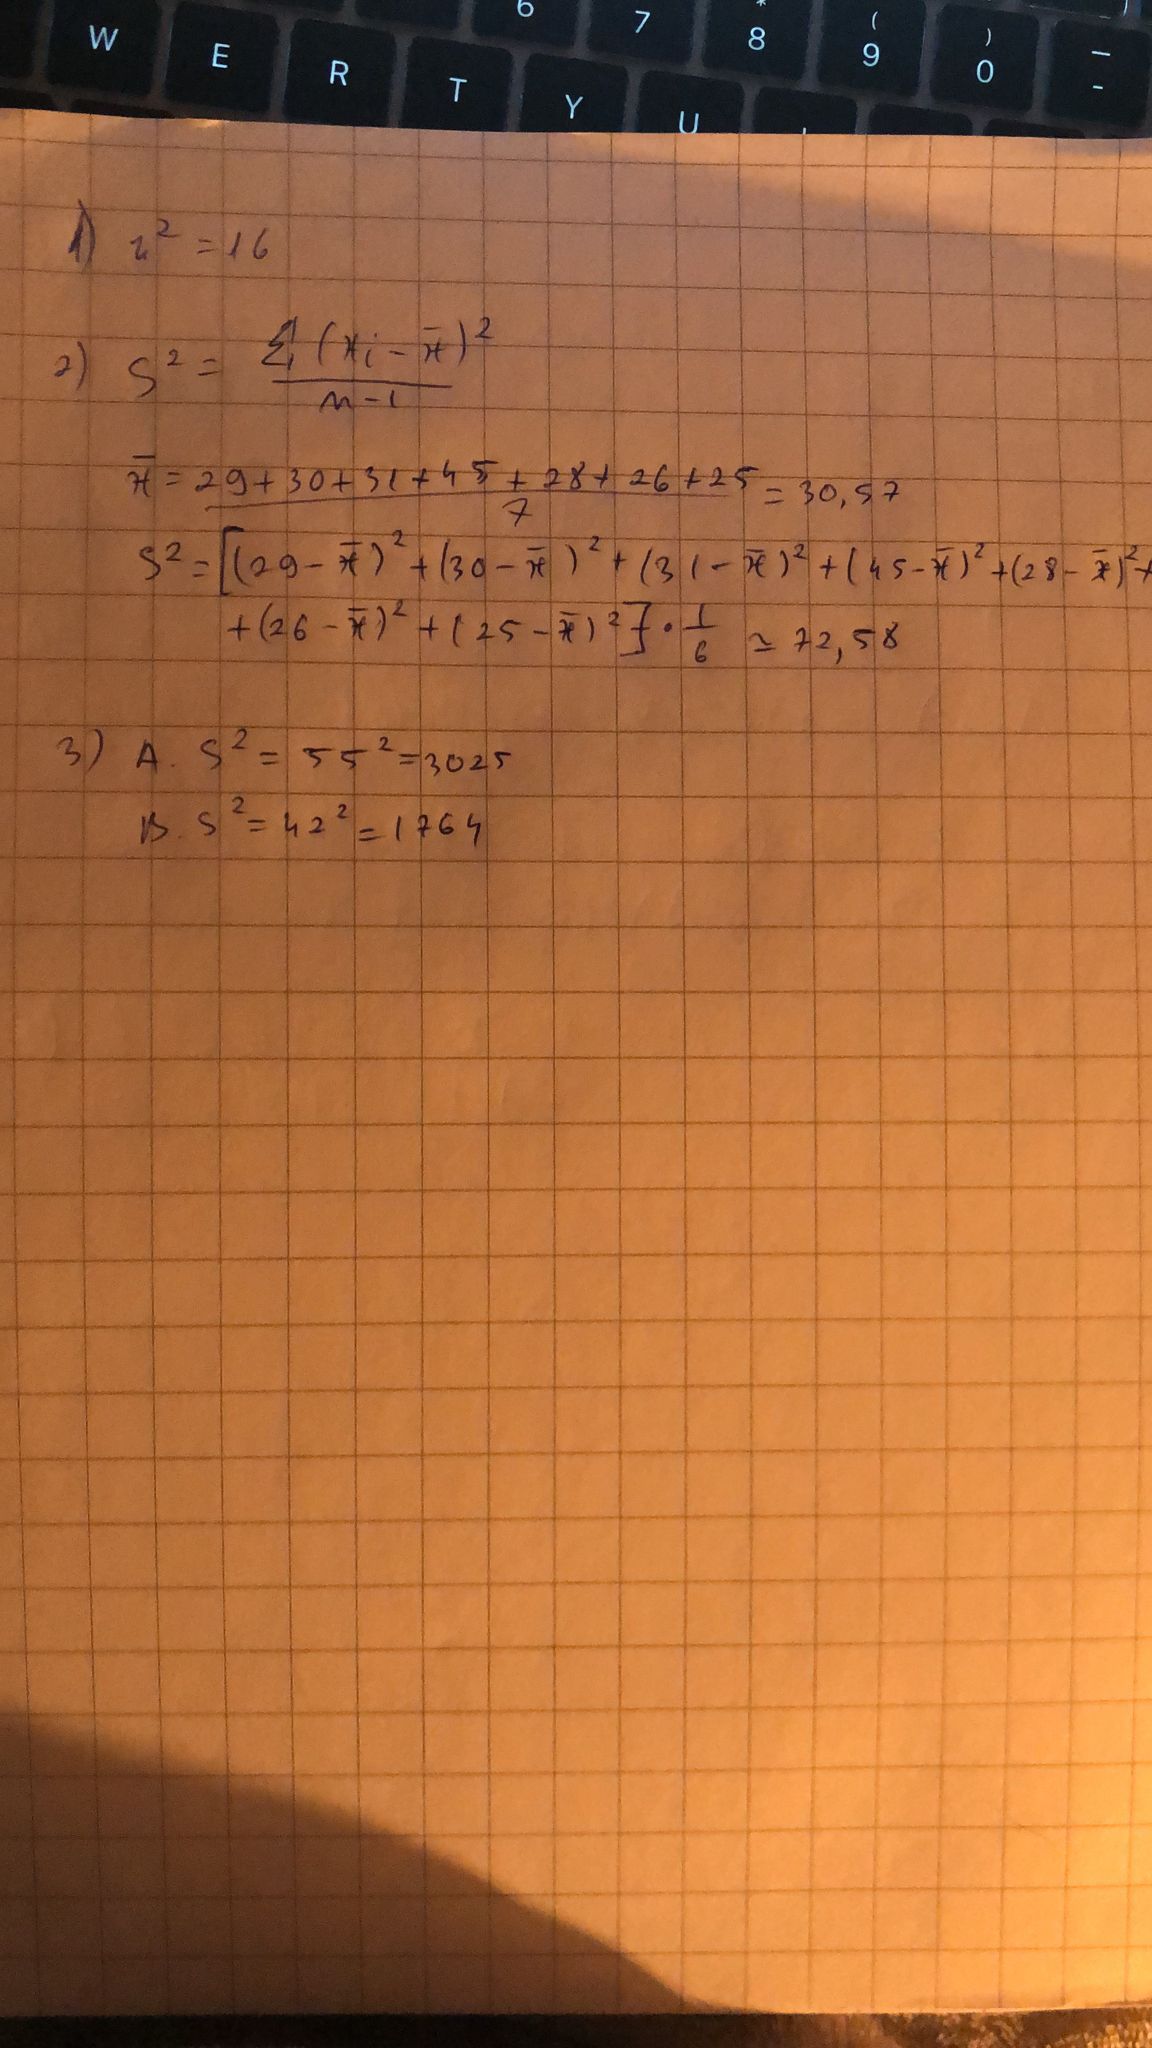 6 7 * 8 ( 9 ) 0 _ -
W E R T Y U
1) r² = 16
2) S² = Σ (xi - x̄)² / n-1
x̄ = 29+30+31+45+28+26+25 / 7 = 30,57
S² = [(29-x̄)² + (30-x̄)² + (31-x̄)² + (45-x̄)² + (28-x̄)² +
+ (26-x̄)² + (25-x̄)²] · 1/6 ≃ 72,58
3) A. S² = 55² = 3025
B. S² = 42² = 1764